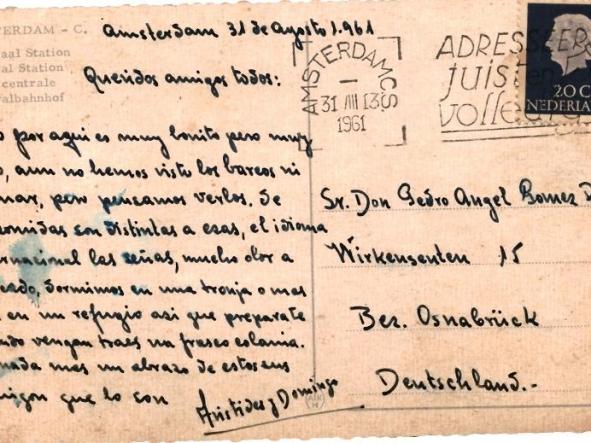 TERDAM - C.
aal Station
al Station
centrale
albahnhof
Amsterdam 31 de Agosto 1.961
Queridos amigos todos:
o por aqui es muy bonito pero muy
o, aun no hemos visto los barcos ni
mar, pero pensamos verlos. Se
omidas son distintas a esas, el idioma
rnacional las señas, mucho olor a
cado, Dormimos en una tronja o mas
en en un refugio asi que preparate
ndo vengan traes un frasco colonia.
nada mas un abrazo de estos sus
amigos que lo son
Aristides y Domingo
AMSTERDAM C.S.
31 VIII 13
1961
ADRESSEER
juist en
volledig
20 C
NEDERLAN
Sr. Don Pedro Angel Gomez D
Wirkensenten 15
Bez. Osnabrück
Deutschland.-